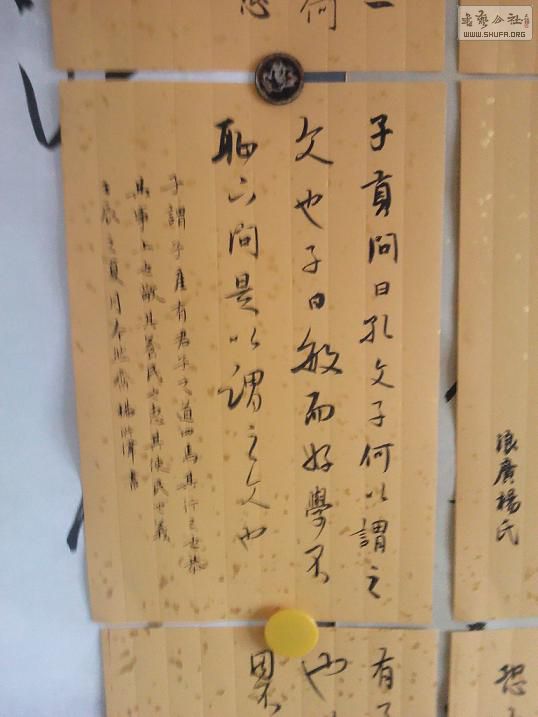 書藝公社
WWW.SHUFA.ORG
一
何
子貢問曰孔文子何以謂之
文也子曰敏而好學不
恥下問是以謂之文也
子謂子產有君子之道四焉其行己也恭
其事上也敬其養民也惠其使民也義
壬辰之夏月
楊
書
浪廣楊氏
有子
也
恐